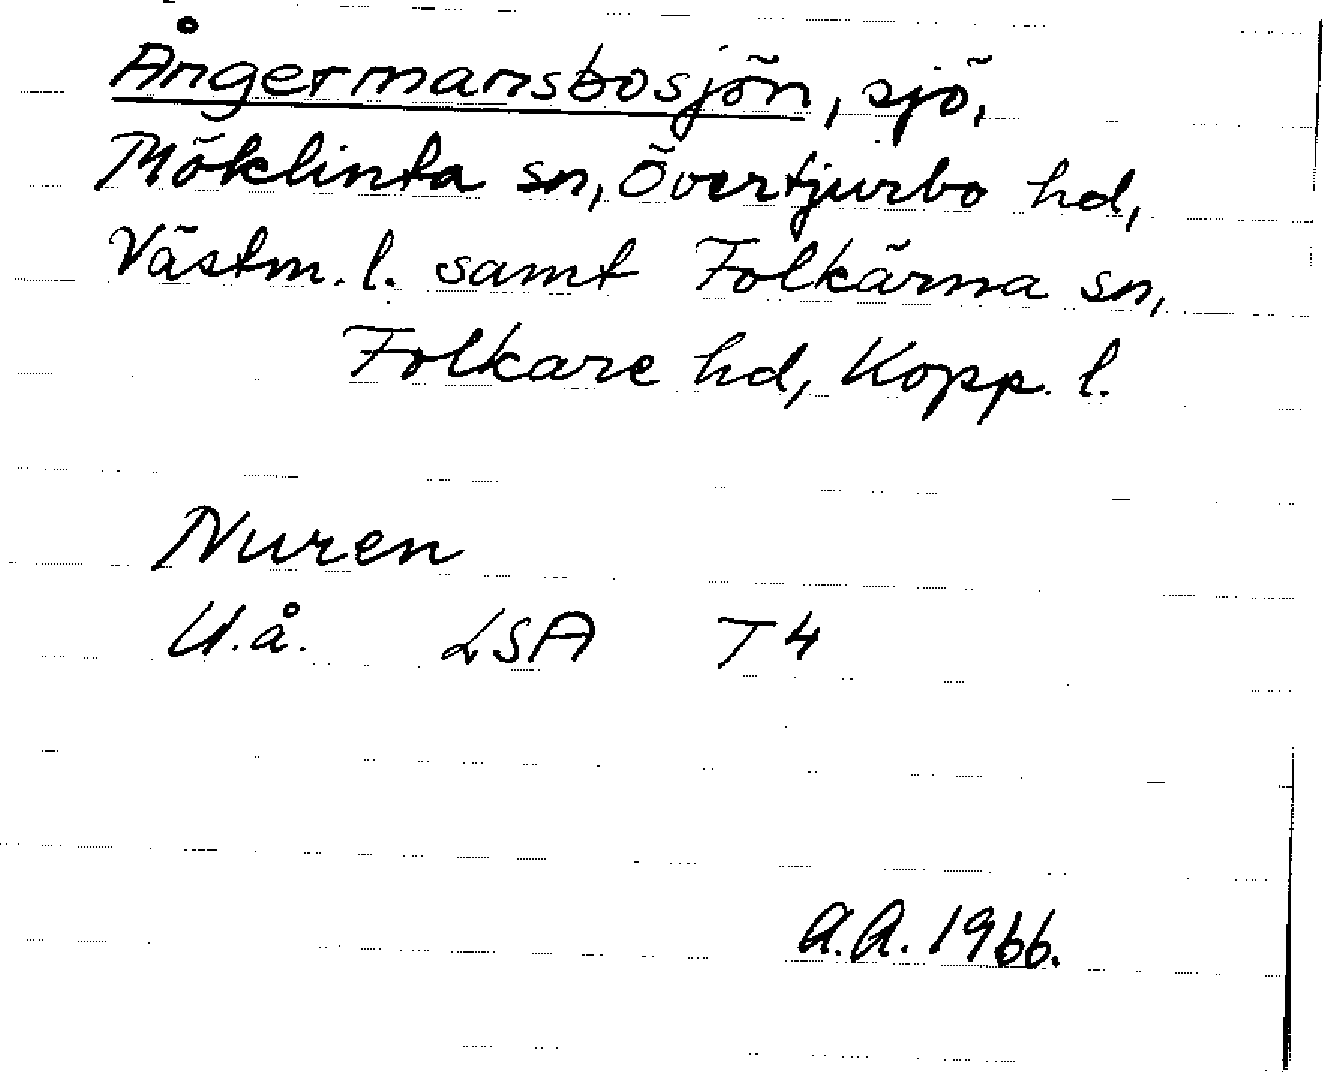 Ångermansbosjön, sjö,
Möklinta sn, Övertjurbo hd,
Västm. l. samt Folkärna sn,
Folkare hd, Kopp. l.
Nuren
U.å. LSA T4
A.A. 1966.